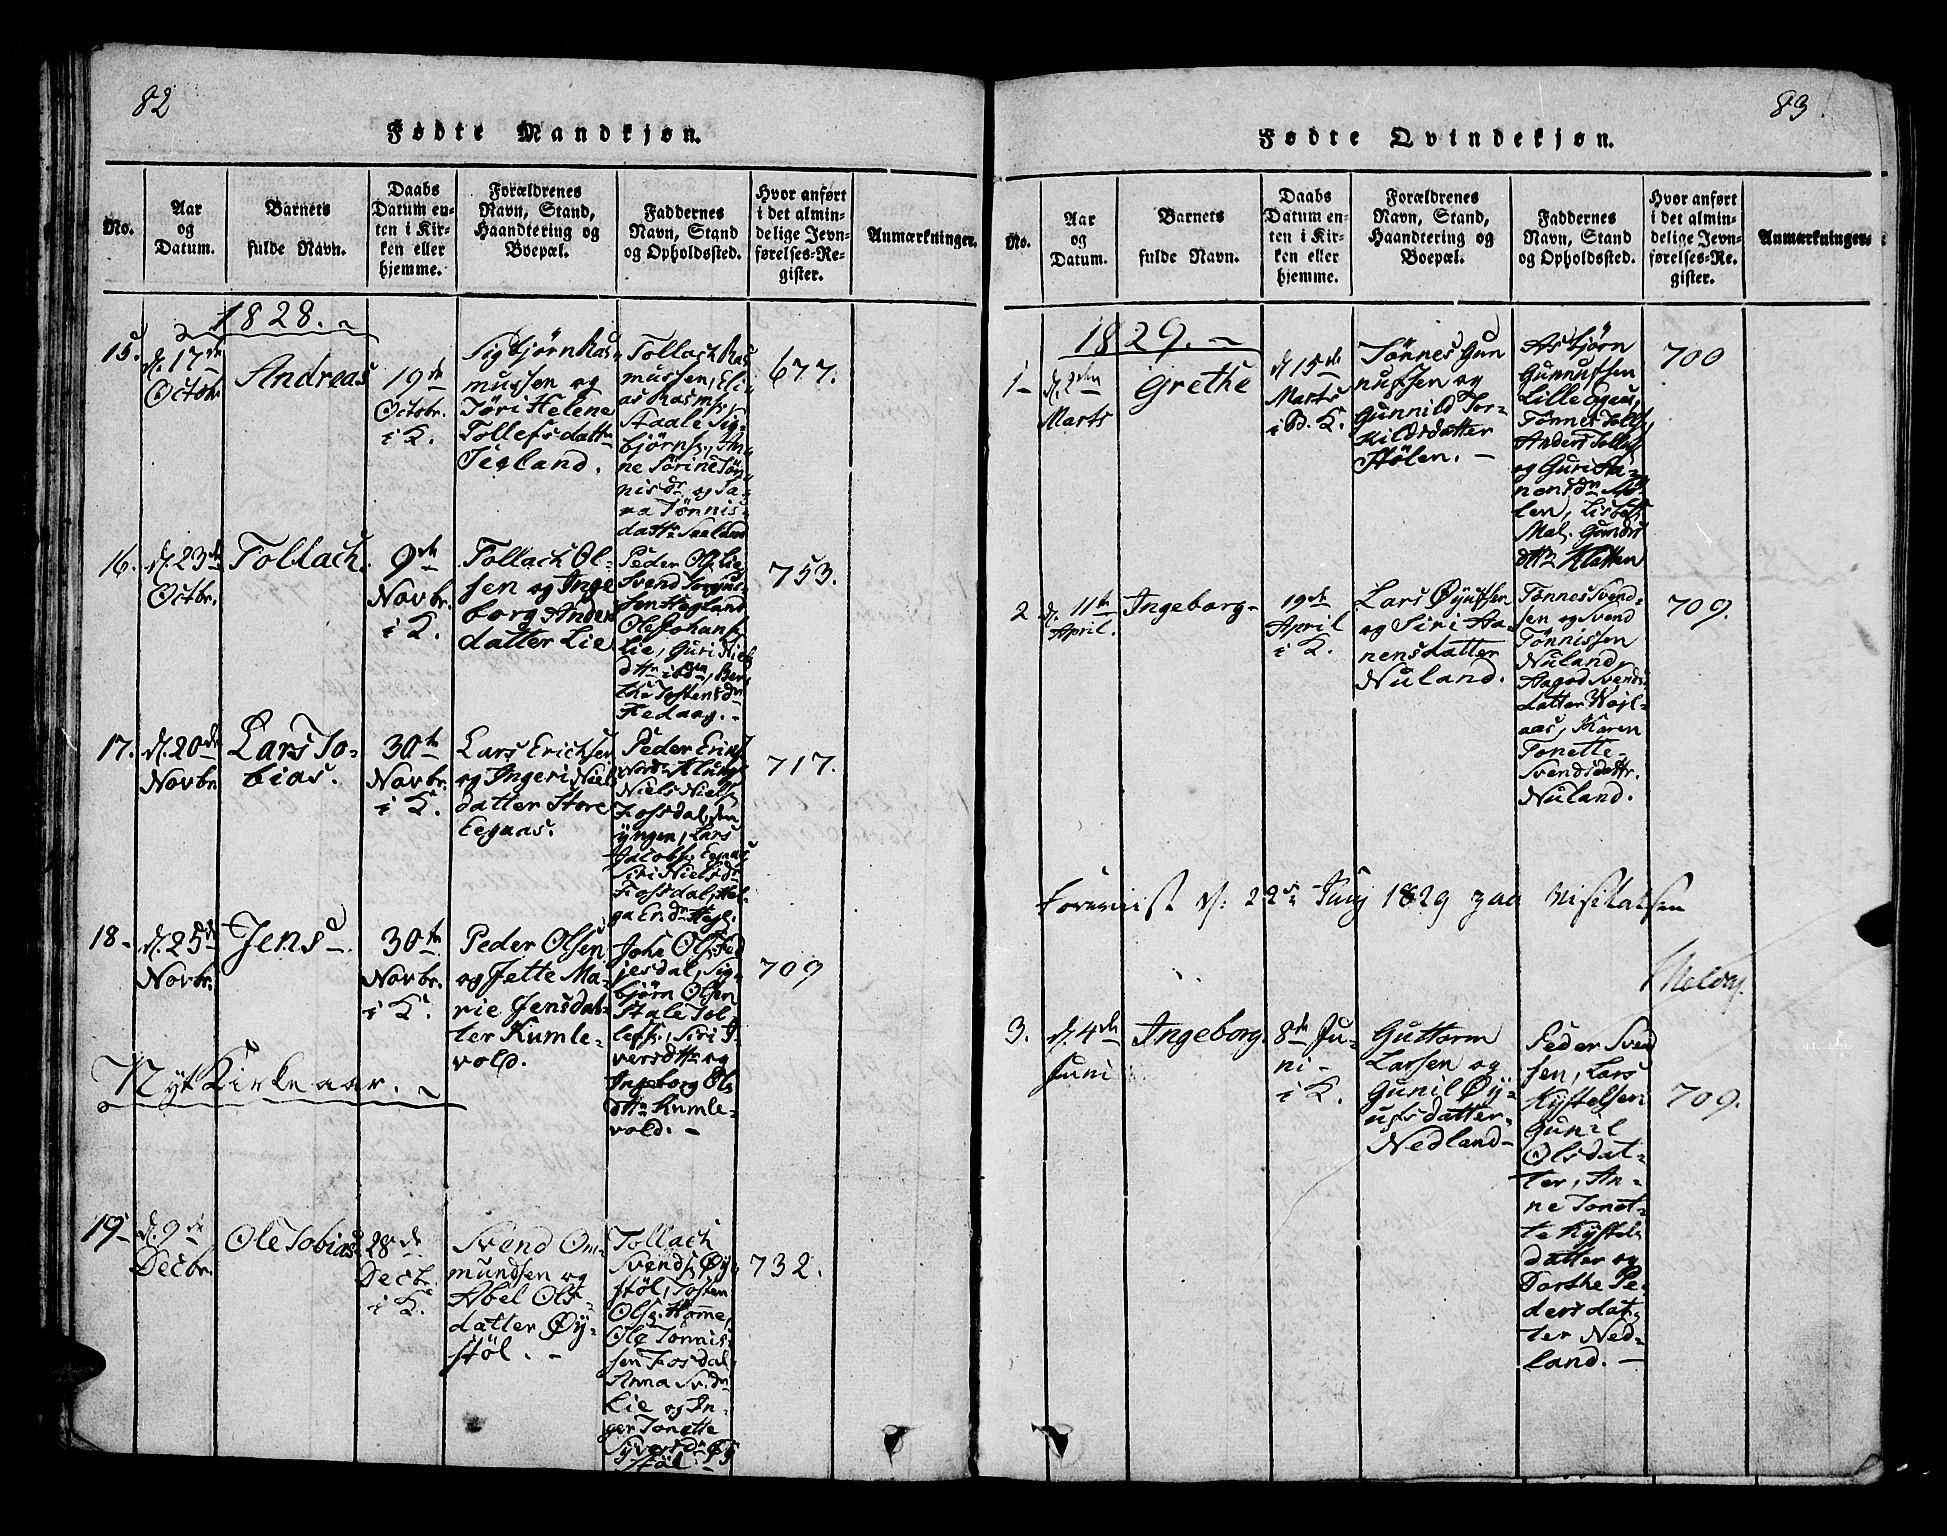 82
Fødte Mandkjøn.
No.
Aar
og
Datum.
Barnets
fulde Navn.
Daabs
Datum en-
ten i Kir-
ken eller
hjemme.
Forældrenes
Navn, Stand,
Haandtering og
Boepæl.
Faddernes
Navn, Stand
og Opholdssted.
Hvor anført
i det almin-
delige Jevn-
førelses-Re-
gister.
Anmærkninger.
1828.
15.
d. 17de
Octobr.
Andreas
19de
Octobr.
i K.
Sigbjørn Ras-
mussen og
Jøri Helene
Tollefsdattr
Tegland.
Tollach Ras
mussen, Eli-
as Rasms.,
Staale Sig-
bjørns., An-
ne Sørine Tøn-
nisdr og Ta-
na Tønnis-
dattr Saaland
677.
16.
d. 23de
Octbr.
Tollach.
9de
Novbr.
i K.
Tollach Ol-
sen og Inge
borg Anders
datter Lie
Peder Ols. Lie
Svend Torgus-
sen Hegland
Ole Johans.
Lie, Guri Niels
dttr ibdm, Ber-
the Tostensdr
Fedaag.
753.
17.
d. 20de
Novbr.
Lars To-
bias.
30te
Novbr.
i K.
Lars Erichsen
og Ingeri Niels
datter Store
Eegaas.
Peder Erichs.
Nordr Klungl.
Niels Niels.
Fossdal, den
yngen, Lars
Jacobs. Egaas
Siri Nielsdr
Fossdal, Hel-
ga Erdr Hegl.
717.
18-
d. 25de
Novbr.
Jens
30te
Novbr.
i K.
Peder Olsen
og Jette Ma-
rie Jensdat-
ter Kumle-
vold.
Johs Ols.
jesdal, Sig-
bjørn Olsen
Stale Tol-
lefs., Siri I-
versdttr og
Ingeborg Ols
dttr Kumle-
vold.
709
Nyt Kirkeaar.
19-
d. 9de
Decbr.
Ole Tobias
28de
Decbr.
i K.
Svend Om-
mundsen og
Abel Ols-
datter Øy-
støl.
Tollach
Svends. Øy-
støl, Tosten
Ols. Homme,
Ole Tønnis-
sen Fosdal,
Anna Sv.dr
Lie og In-
ger Tonette
Syversdr Øy
støl.
732.
83.
Fødte Qvindekjøn.
No.
Aar
og
Datum.
Barnets
fulde Navn.
Daabs
Datum en-
ten i Kir-
ken eller
hjemme.
Forældrenes
Navn, Stand,
Haandtering og
Boepæl.
Faddernes
Navn, Stand
og Opholdssted.
Hvor anført
i det almin-
delige Jevn-
førelses-Re-
gister.
Anmærkninger.
1829.
1-
d. 2den
Marts
Grethe
d 15de
Marts
i B. K.
Tønnes Gun
nufsen og
Gunnild Tor-
kildsdatter
Stølen.
Asbjørn
Gunnufsen
Lille Egaas,
Tønnes Tollfs,
Anders Tollfs
og Guri Aa-
nensdr Stø-
len, Lisbeth
Mal. Gunds
dttr Klatten
700
2
d. 11te
April.
Ingeborg-
19de
April
i K.
Lars Øyufsen
og Siri Aa-
nensdatter
Nuland.
Tønnes Svend-
sen og Svend
Tønnissen
Nuland,
Aagod Svends-
datter
aas, Karen
Tonette
Svendsdattr.
Nuland.
709.
d: 22de Juny 1829 paa Visitatsen
3.
d. 4de
Juni
Ingeborg.
8de Ju-
ni-
i K.
Guttorm
Larsen og
Gunil Øy-
ufsdatter
Nedland-
Peder Svend
sen, Lars
Kystelsen
Gunil
Olsdat-
ter, An-
ne Tonet-
te Kystels
datter og
Dorthe Pe-
dersdat-
ter Ned-
land.
709.